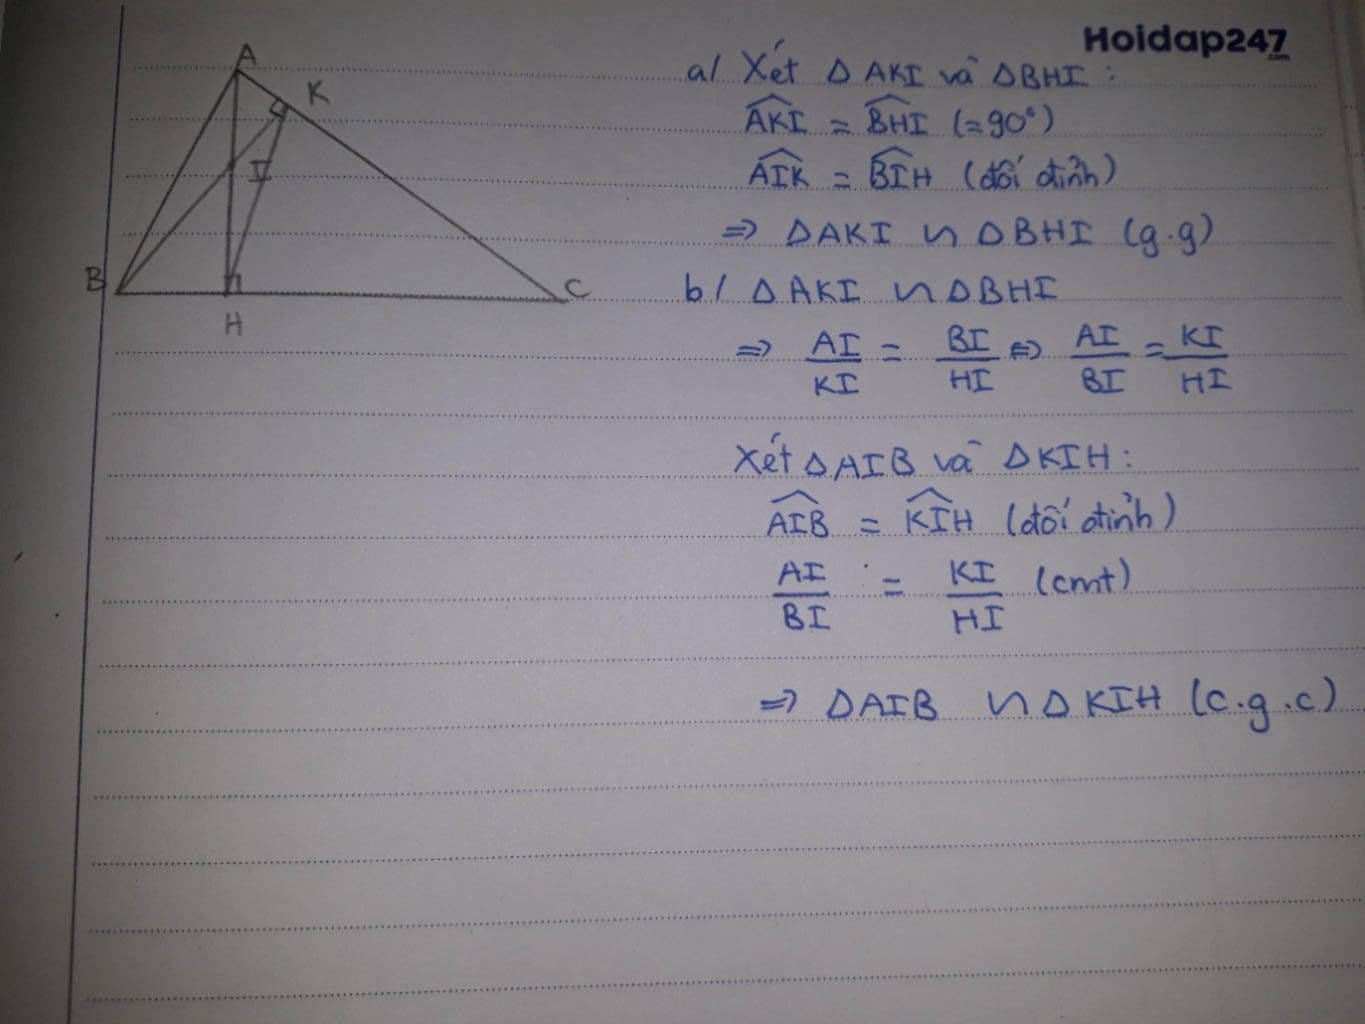 Hoidap247
.com
A
K
I
B
C
H
a/ Xét △AKI và △BHI :
AKI = BHI (=90°)
AIK = BIH (đối đỉnh)
⇒ △AKI ∽ △BHI (g.g)
b/ △AKI ∽ △BHI
⇒ AI/KI = BI/HI ⇔ AI/BI = KI/HI
Xét △AIB và △KIH :
AIB = KIH (đối đỉnh)
AI/BI = KI/HI (cmt)
⇒ △AIB ∽ △KIH (c.g.c)